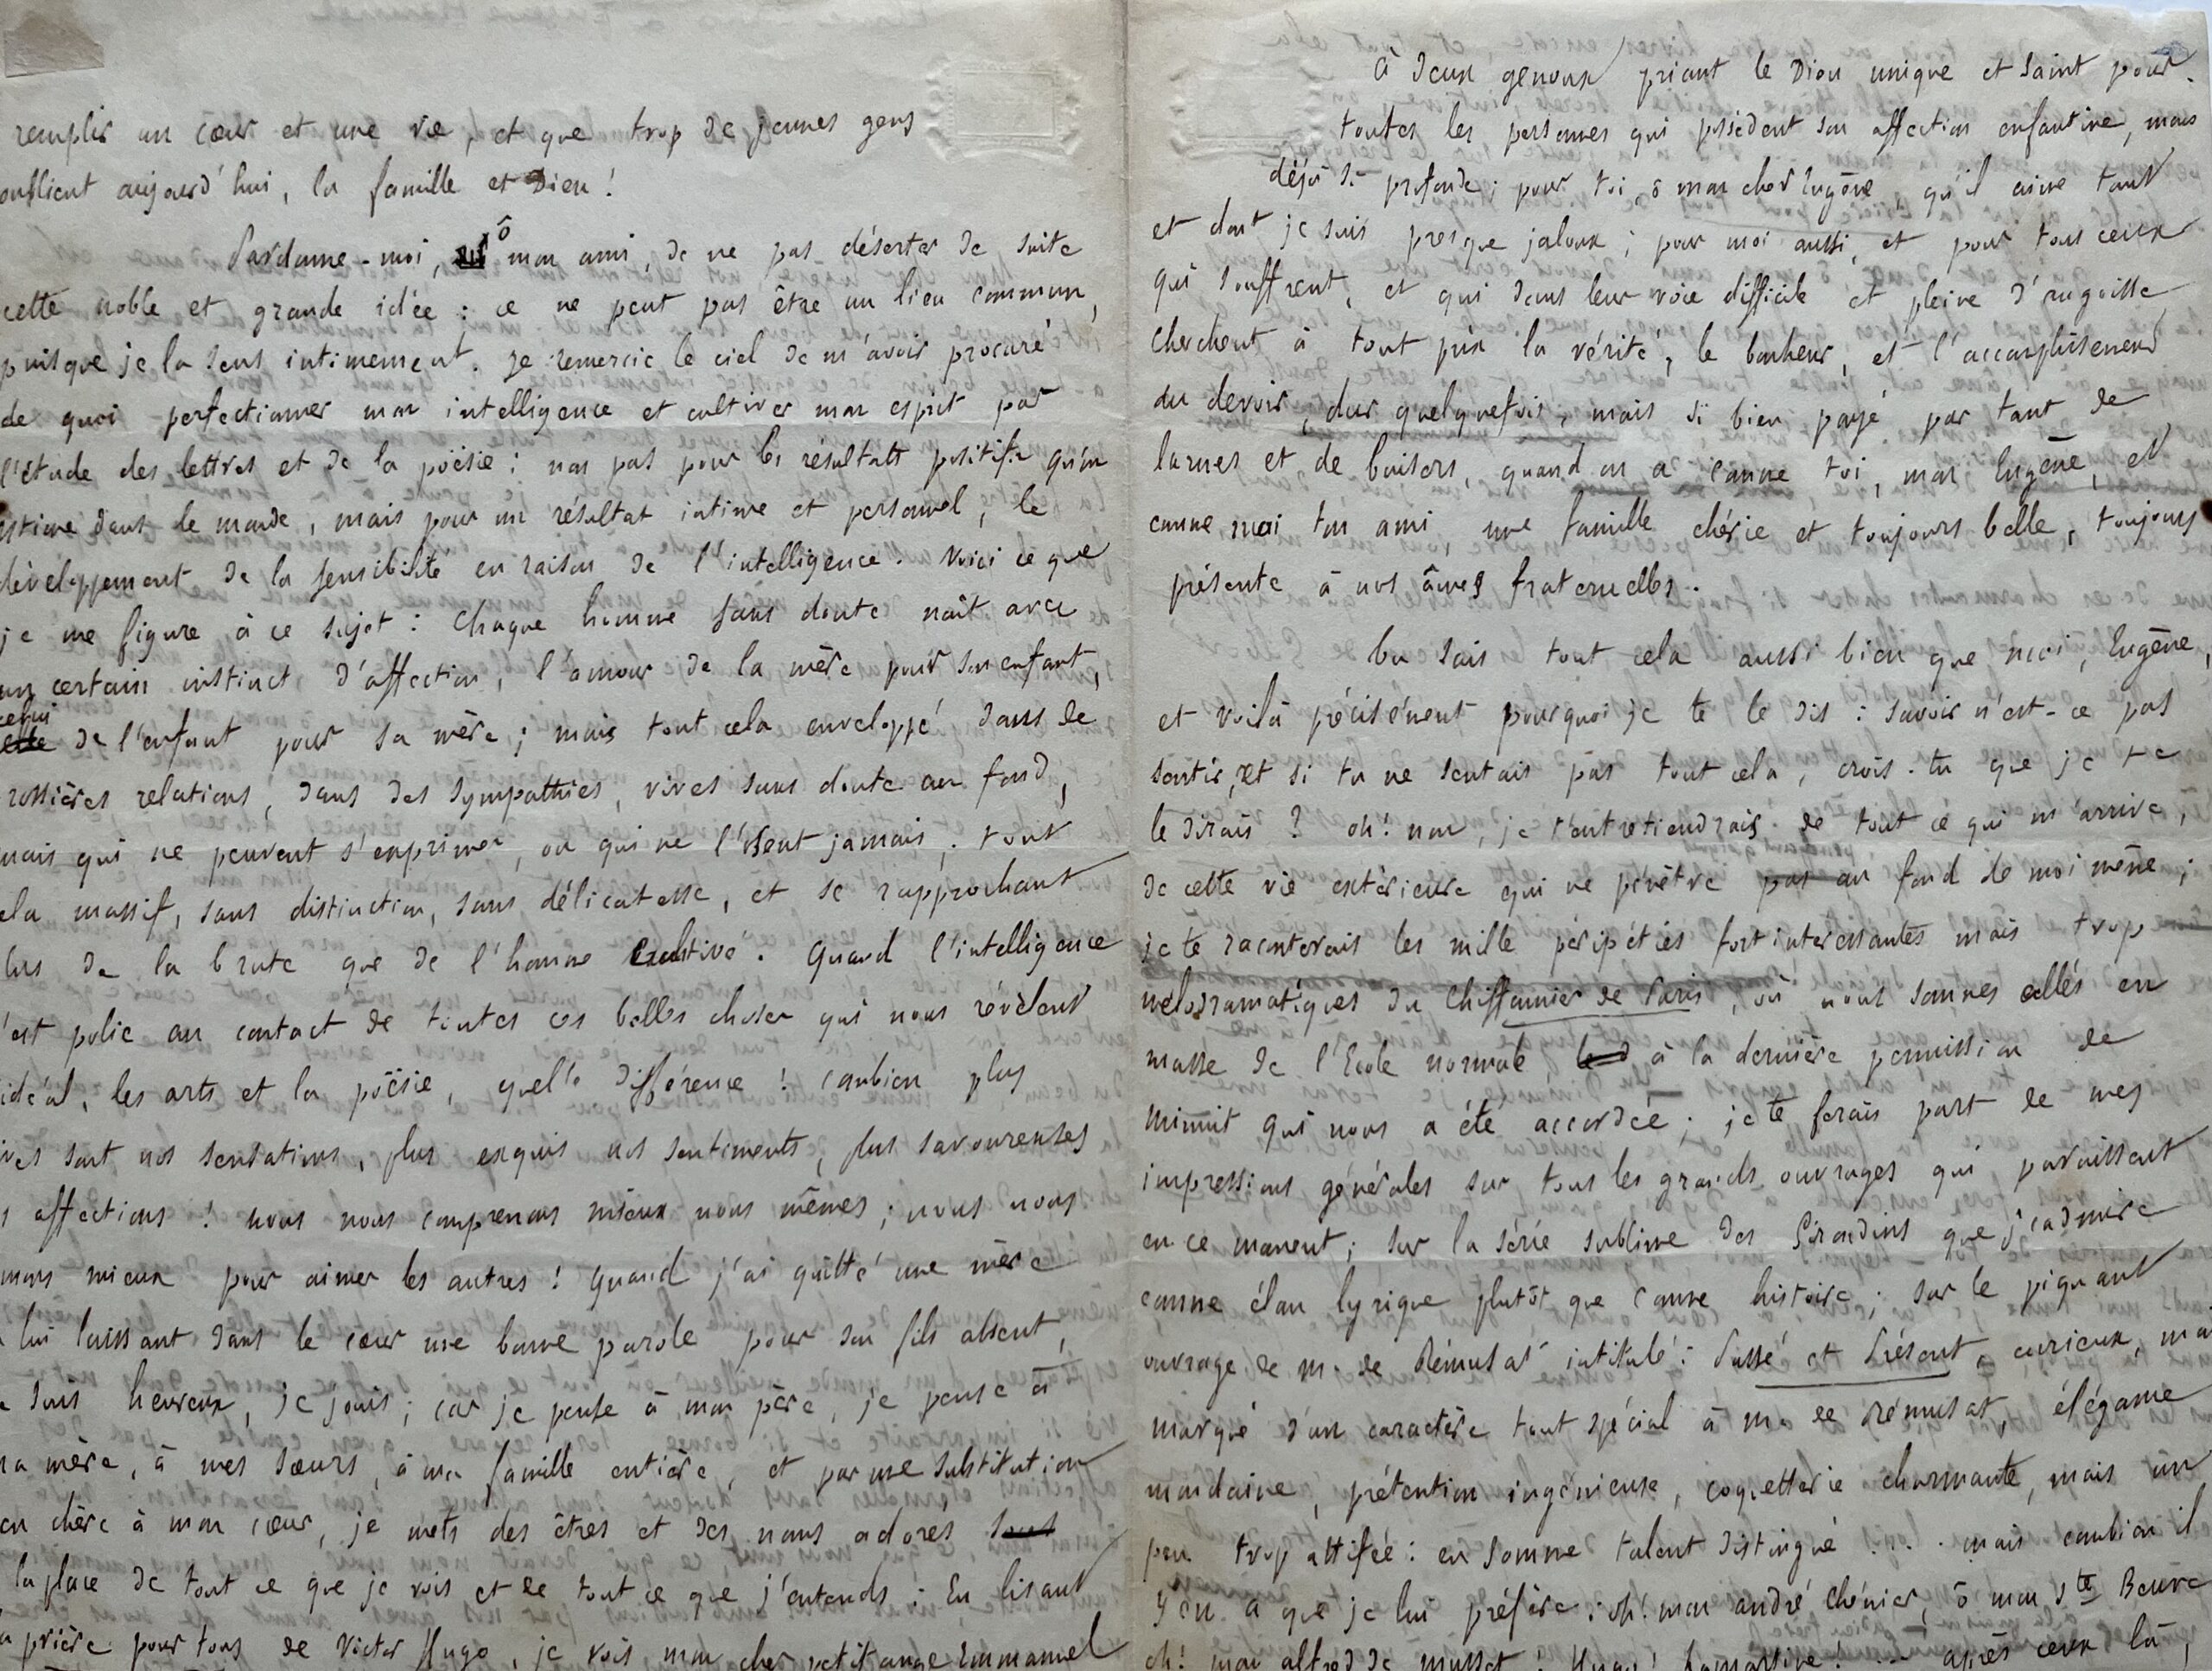 remplir un cœur et une vie, et que trop de jeunes gens
oublient aujourd'hui, la famille et Dieu !
Pardonne-moi, ô mon ami, de ne pas déserter de suite
cette noble et grande idée : ce ne peut pas être un lieu commun,
puisque je la sens intimement. Je remercie le ciel de m'avoir procuré
de quoi perfectionner mon intelligence et cultiver mon esprit par
l'étude des lettres et de la poësie : non pas pour les résultats positifs qu'on
estime dans le monde, mais pour un résultat intime et personnel, le
développement de la sensibilité en raison de l'intelligence. Voici ce que
je me figure à ce sujet : Chaque homme sans doute naît avec
un certain instinct d'affection, l'amour de la mère pour son enfant,
celui de l'enfant pour sa mère ; mais tout cela enveloppé dans de
rossières relations, dans des sympathies, vives sans doute au fond,
mais qui ne peuvent s'exprimer, ou qui ne l'osent jamais ; tout
ela massif, sans distinction, sans délicatesse, et se rapprochant
lus de la brute que de l'homme cultivé. Quand l'intelligence
'est polie au contact de toutes ces belles choses qui nous révèlent
idéal, les arts et la poësie, quelle différence ! combien plus
ives sont nos sensations, plus exquis nos sentiments, plus savoureuses
s affections ! nous nous comprenons mieux nous mêmes ; nous nous
mons mieux pour aimer les autres ! Quand j'ai quitté une mère
lui laissant dans le cœur une bonne parole pour son fils absent,
e suis heureux, je jouis ; car je pense à mon père, je pense à
ma mère, à mes sœurs, à ma famille entière, et par une substitution
en chère à mon cœur, je mets des êtres et des noms adorés sous
la place de tout ce que je vois et de tout ce que j'entends : En lisant
a prière pour tous de Victor Hugo, je vois mon cher petit ange Emmanuel
à deux genoux priant le Dieu unique et Saint pour
toutes les personnes qui possèdent son affection enfantine, mais
déjà si profonde ; pour toi, ô mon cher Eugène, qu'il aime tant
et dont je suis presque jaloux ; pour moi aussi, et pour tous ceux
qui souffrent, et qui dans leur voie difficile et pleine d'angoisse
cherchent à tout prix la vérité, le bonheur, et l'accomplissement
du devoir, dur quelquefois, mais si bien payé par tant de
larmes et de baisers, quand on a comme toi, mon Eugène, et
comme moi ton ami, une famille chérie et toujours belle, toujours
présente à nos âmes fraternelles.
Tu sais tout cela aussi bien que moi, Eugène,
et voilà précisément pourquoi je te le dis : savoir n'est-ce pas
sentir, et si tu ne sentais pas tout cela, crois-tu que je te
le dirais ? oh ! non, je t'entretiendrais de tout ce qui m'arrive,
de cette vie extérieure qui ne pénètre pas au fond de moi même ;
je te raconterais les mille péripéties fort intéressantes mais trop
mélodramatiques du Chiffonnier de Paris, où nous sommes allés en
masse de l'Ecole normale à la dernière permission de
minuit qui nous a été accordée ; je te ferais part de mes
impressions générales sur tous les grands ouvrages qui paraissent
en ce moment ; sur la série sublime des Girondins que j'admire
comme élan lyrique plutôt que comme histoire ; sur le piquant
ouvrage de M. de Rémusat intitulé : Passé et Présent, curieux, mai
marqué d'un caractère tout spécial à M. de Rémusat, élégance
mondaine, prétention ingénieuse, coquetterie charmante, mais un
peu trop attifée : en somme talent distingué .... mais combien il
y en a que je lui préfère : oh ! mon andré Chénier, ô mon Ste Beuve
oh ! mon alfred de musset ! Hugo ! Lamartine ! ... après ceux là,